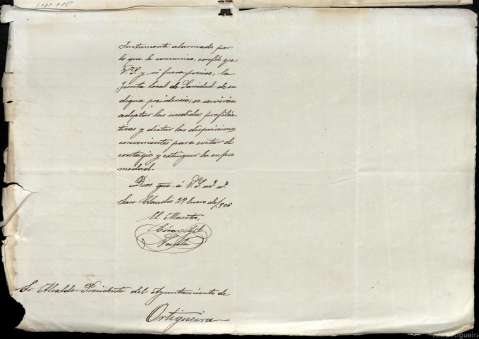 Justamente alarmado por
lo que le comunica, confío que
V. S. y, si fuera preciso, la
Junta local de Sanidad de su
digna presidencia, se servirán
adoptar las medidas profilác-
ticas y dictar las disposiciones
convenientes para evitar el
contagio y extinguir la enfer-
medad.
Dios gue. á V. S. m. a.
San Claudio 29 Enero de 1905
El Maestro,
Sr. Alcalde Presidente del Ayuntamiento de
Ortigueira